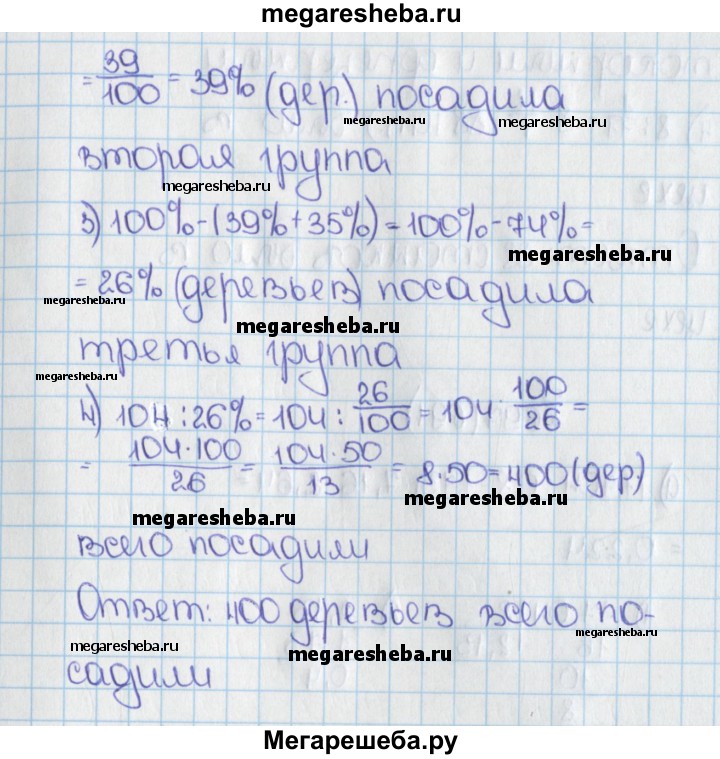 megaresheba.ru
= 39/100 = 39% (дер.) посадила
megaresheba.ru megaresheba.ru
вторая группа
megaresheba.ru
3) 100% - (39% + 35%) = 100% - 74% =
megaresheba.ru
= 26% (деревьев) посадила
megaresheba.ru
megaresheba.ru
третья группа
megaresheba.ru
4) 104 : 26% = 104 : 26/100 = 104 · 100/26 =
= 104·100/26 = 104·50/13 = 8·50 = 400 (дер)
megaresheba.ru megaresheba.ru
всего посадили
megaresheba.ru
Ответ: 400 деревьев всего по-
megaresheba.ru
megaresheba.ru megaresheba.ru
садили
Мегарешеба.ру